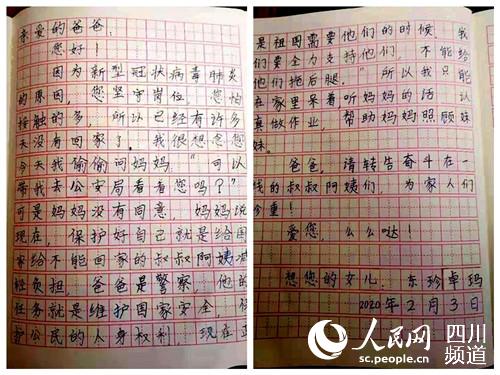 亲爱的爸爸：
您好！
因为新型冠状病毒肺炎
的原因，您坚守岗位，您怕
接触的多，所以已经有许多
天没有回家了。我很想念您
今天我偷偷问妈妈："可以
带我去公安局看看您吗？"
可是妈妈没有同意，妈妈说
现在，保护好自己就是给国
家给不能回家的叔叔阿姨减
轻负担，爸爸是警察，他的
任务就是维护国家安全，保
护公民的人身权利，现在正
是祖国需要他们的时候，我
们要全力支持他们，不能给
他们拖后腿。"所以我只能
在家里呆着听妈妈的话，认
真做作业，帮助妈妈照顾妹
妹。
爸爸，请转告奋斗在一
线的叔叔阿姨们，为家人们
珍重！
爱您，么么哒！
想您的女儿：东珍卓玛
2020年2月3日
人民网 四川频道
sc.people.cn